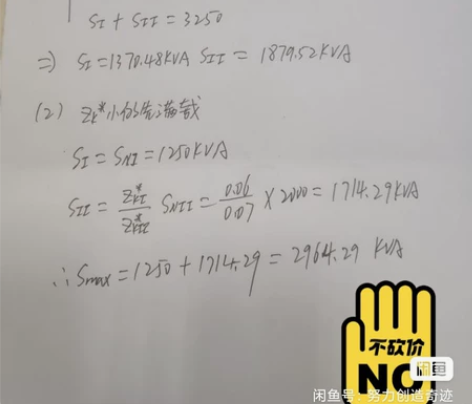 SI + SII = 3250
⇒ SI = 1370.48KVA SII = 1879.52KVA
(2) Zk*小的先满载
SI = SNI = 1250KVA
SII = Z*kI / Z*kII SNII = 0.06 / 0.07 × 2000 = 1714.29KVA
∴ Smax = 1250 + 1714.29 = 2964.29 KVA
不砍价
闲鱼
NO
闲鱼号：努力创造奇迹